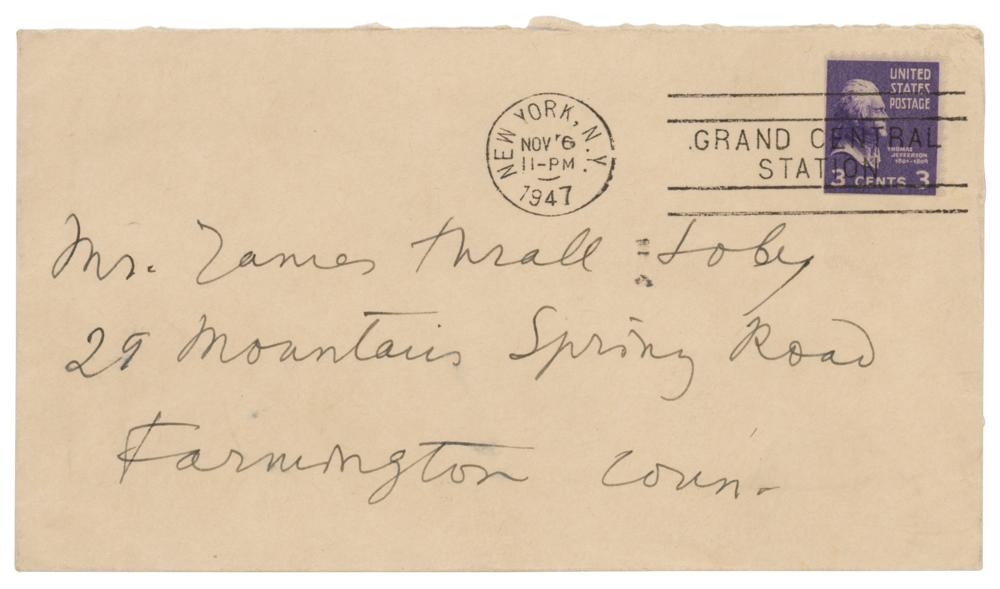 UNITED
STATES
POSTAGE
THOMAS
JEFFERSON
1801-1809
3 CENTS 3
NEW YORK, N.Y.
NOV 6
11-PM
1947
GRAND CENTRAL
STATION
Mr. James Thrall Soby
29 Mountain Spring Road
Farmington Conn.